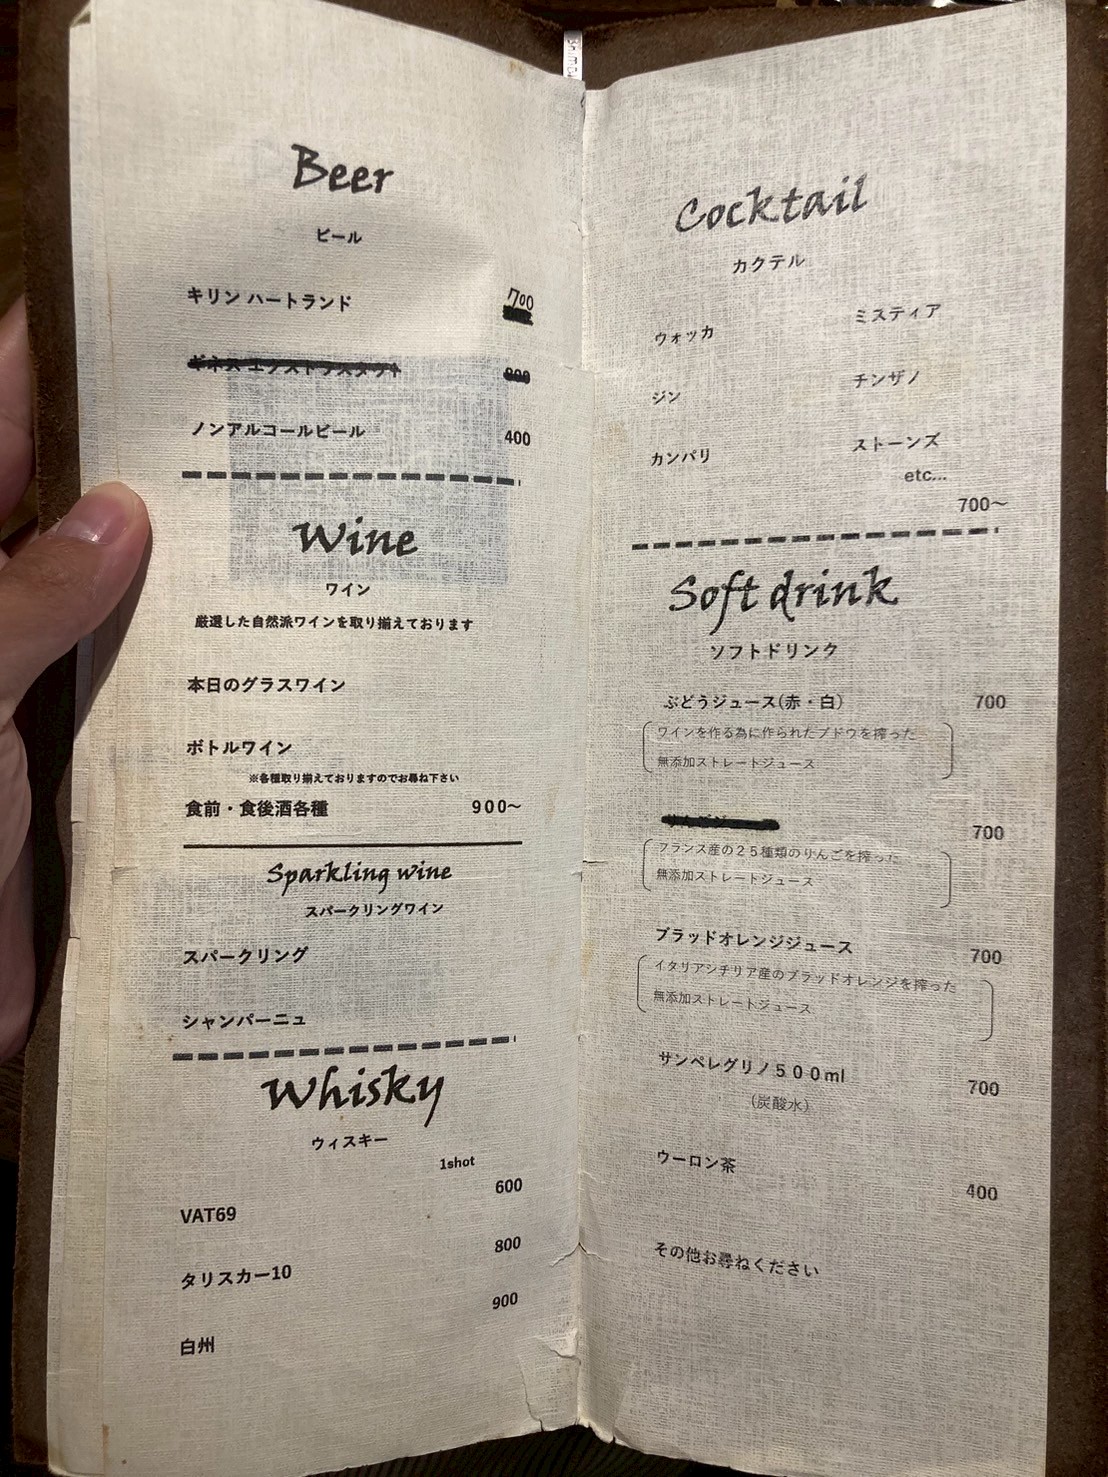 Beer
ビール
キリン ハートランド 700
ギネス エクストラスタウト 800
ノンアルコールビール 400
Wine
ワイン
厳選した自然派ワインを取り揃えております
本日のグラスワイン
ボトルワイン
※各種取り揃えておりますのでお尋ね下さい
食前・食後酒各種 900～
Sparkling wine
スパークリングワイン
スパークリング
シャンパーニュ
Whisky
ウィスキー
1shot
VAT69 600
タリスカー10 800
白州 900
Cocktail
カクテル
ウォッカ ミスティア
ジン チンザノ
カンパリ ストーンズ
etc...
700～
Soft drink
ソフトドリンク
ぶどうジュース(赤・白) 700
ワインを作る為に作られたブドウを搾った
無添加ストレートジュース
700
フランス産の25種類のりんごを搾った
無添加ストレートジュース
ブラッドオレンジジュース 700
イタリアシチリア産のブラッドオレンジを搾った
無添加ストレートジュース
サンペレグリノ500ml 700
(炭酸水)
ウーロン茶 400
その他お尋ねください